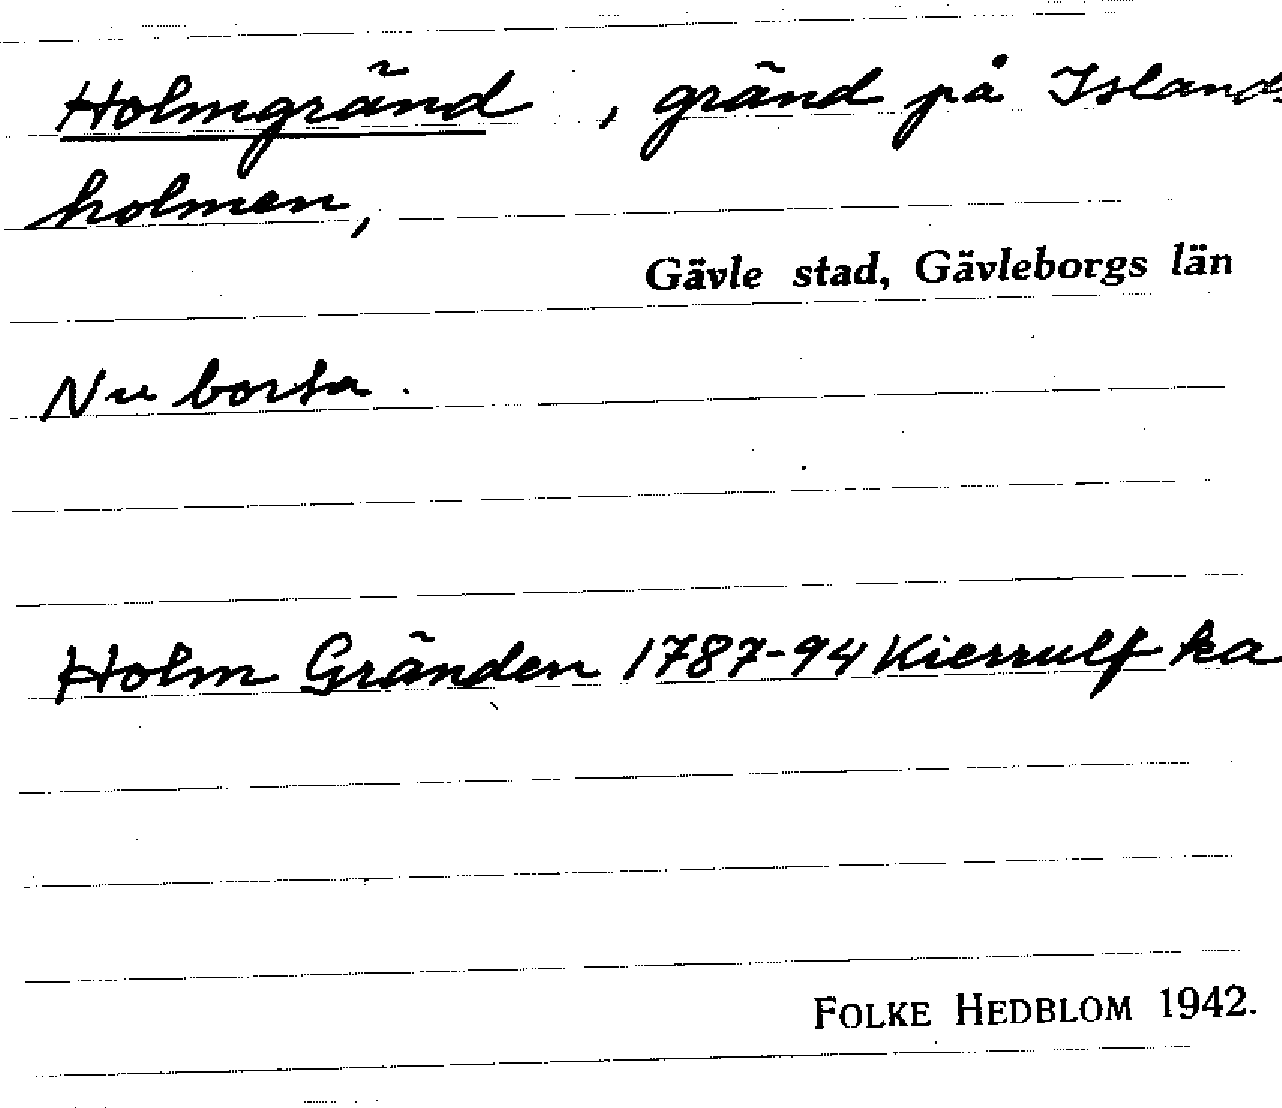 Holmgränd, gränd på Islands
holmen,
Gävle stad, Gävleborgs län
Nu borta.
Holm Gränden 1787-94 Kierrulf ka
FOLKE HEDBLOM 1942.